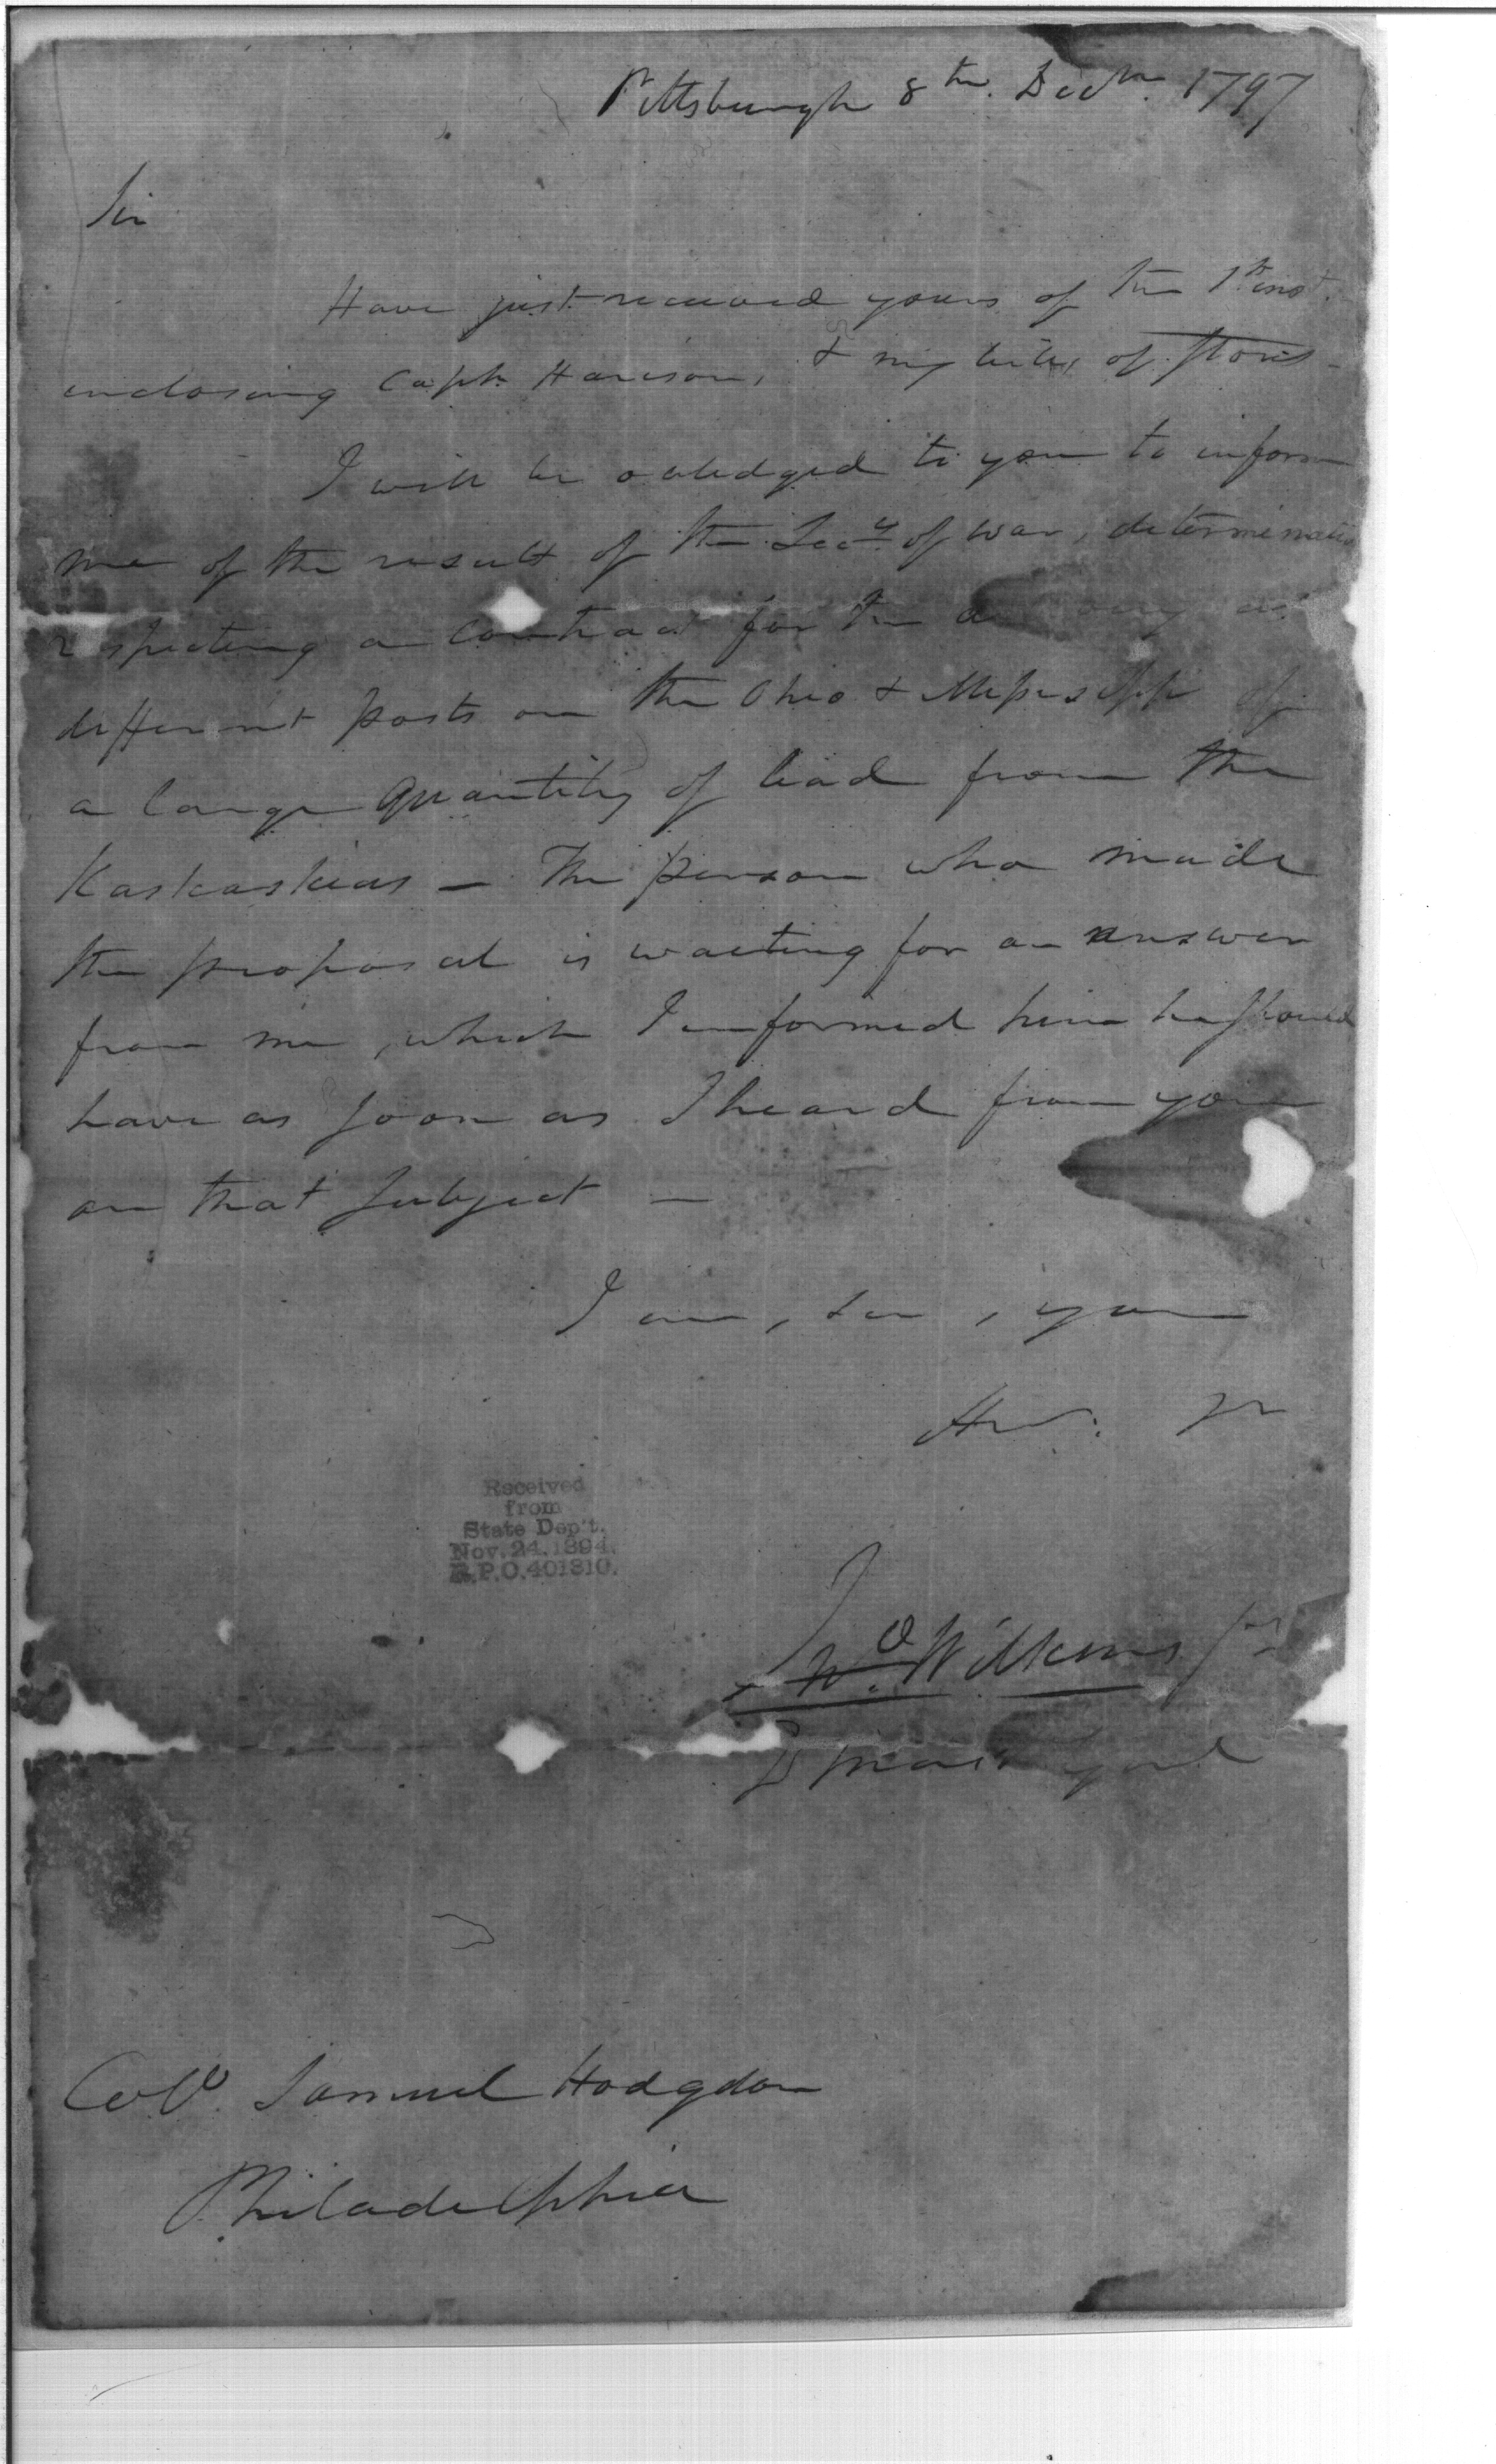 Pittsburgh 8th. Decm. 1797
Sir
Have just received yours of the 1st inst.
inclosing Capt. Harrison, & my bills of Stores -
I will be obledged to you to inform
me of the result of the Secy. of war, determination
respecting a Contract for the
different posts on the Ohio & Mississippi of
a large Quantity of lead from the
Kaskaskias — The person who made
the proposal is waiting for an answer
from me, which I informed him he should
have as soon as I heard from you
on that Subject —
I am, Sir, your
Received
from
State Dep't.
Nov. 24. 1894.
R.P.O. 401810.
Jno. Wilkins Jr
Colo. Samuel Hodgdon
Philadelphia